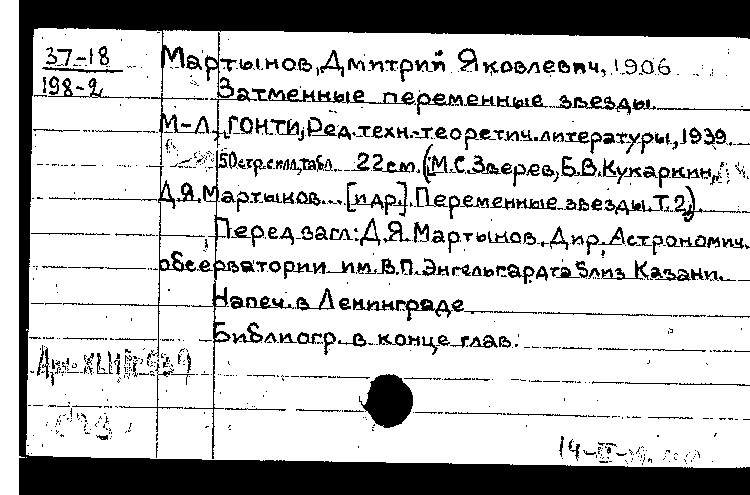 37-18
198-2
Мартынов, Дмитрий Яковлевич, 1906
Затменные переменные звезды.
М-Л., ГОНТИ, Ред. техн.-теоретич. литературы, 1939.
22 см. (М.С. Зверев, Б.В. Кукаркин,
Д.Я. Мартынов... [и др.]. Переменные звезды. Т. 2,).
Перед загл: Д.Я. Мартынов, Дир. Астрономич.
обсерватории им. В.П. Энгельгардта близ Казани.
Напеч. в Ленинграде
Библиогр. в конце глав.